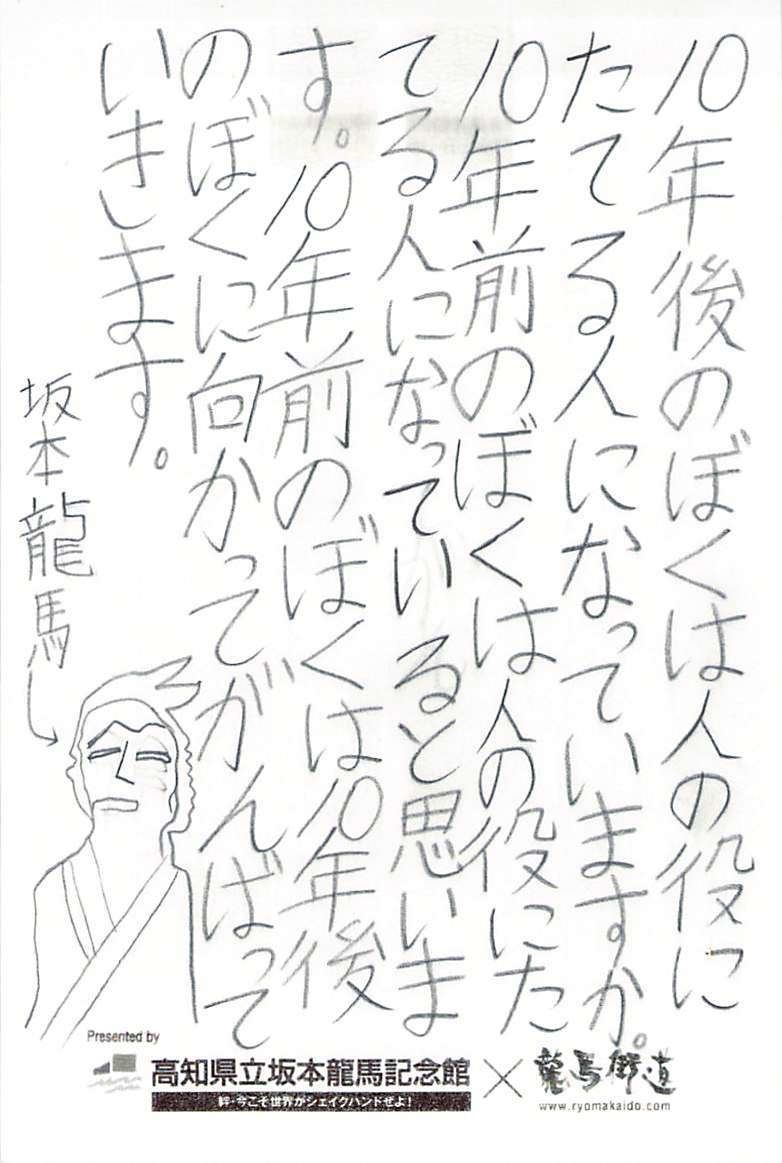 10年後のぼくは人の役に
たてる人になっていますか。
10年前のぼくは人の役にた
てる人になっていると思いま
す。10年前のぼくは10年後
のぼくに向かってがんばって
いきします。
坂本龍馬
Presented by
高知県立坂本龍馬記念館
絆・今こそ世界がシェイクハンドぜよ!
×
龍馬街道
www.ryomakaido.com